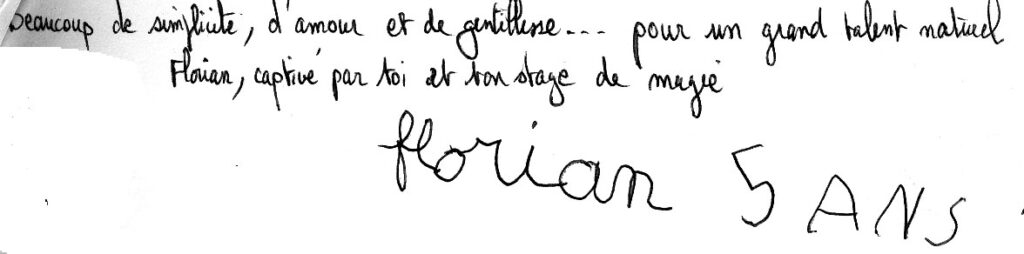 beaucoup de simplicité, d'amour et de gentillesse... pour un grand talent naturel
Florian, captivé par toi et ton stage de magie
florian 5 ANS